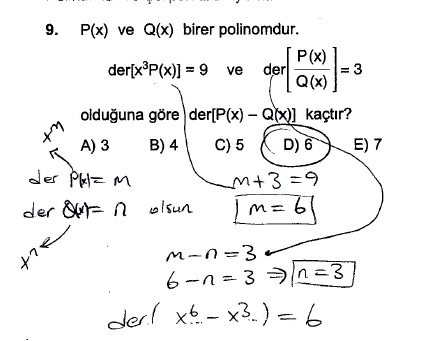 9. P(x) ve Q(x) birer polinomdur.
der[x³P(x)] = 9 ve der[P(x)/Q(x)] = 3
olduğuna göre der[P(x) – Q(x)] kaçtır?
A) 3 B) 4 C) 5 D) 6 E) 7
xᵐ
der P(x) = m
der Q(x) = n olsun
xⁿ
m + 3 = 9
m = 6
m – n = 3
6 – n = 3 ⇒ n = 3
der( x⁶ – x³ ) = 6